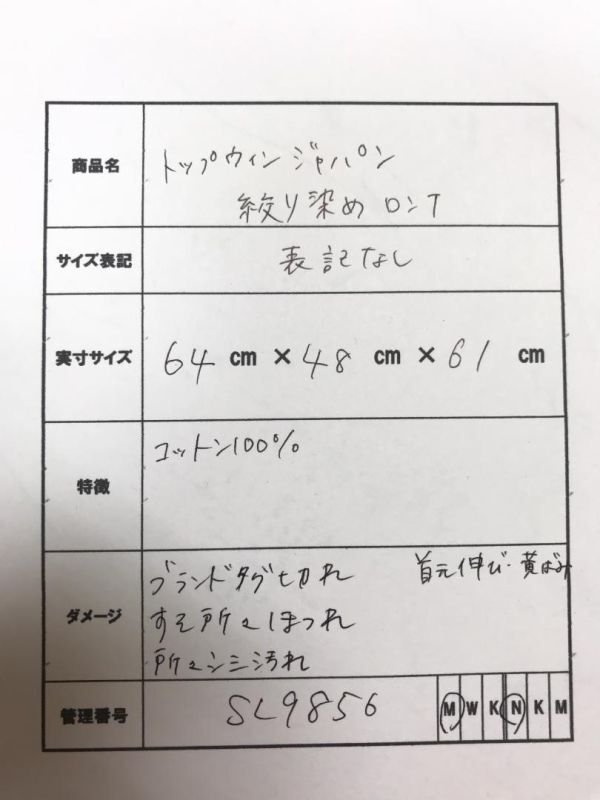 商品名
トップウィンジャパン
絞り染めロンT
サイズ表記
表記なし
実寸サイズ
64 cm × 48 cm × 61 cm
特徴
コットン100%
ダメージ
ブランドタグ切れ 首元伸び・黄ばみ
すそ所々ほつれ
所々シミ汚れ
管理番号
SL9856 M W K N K M